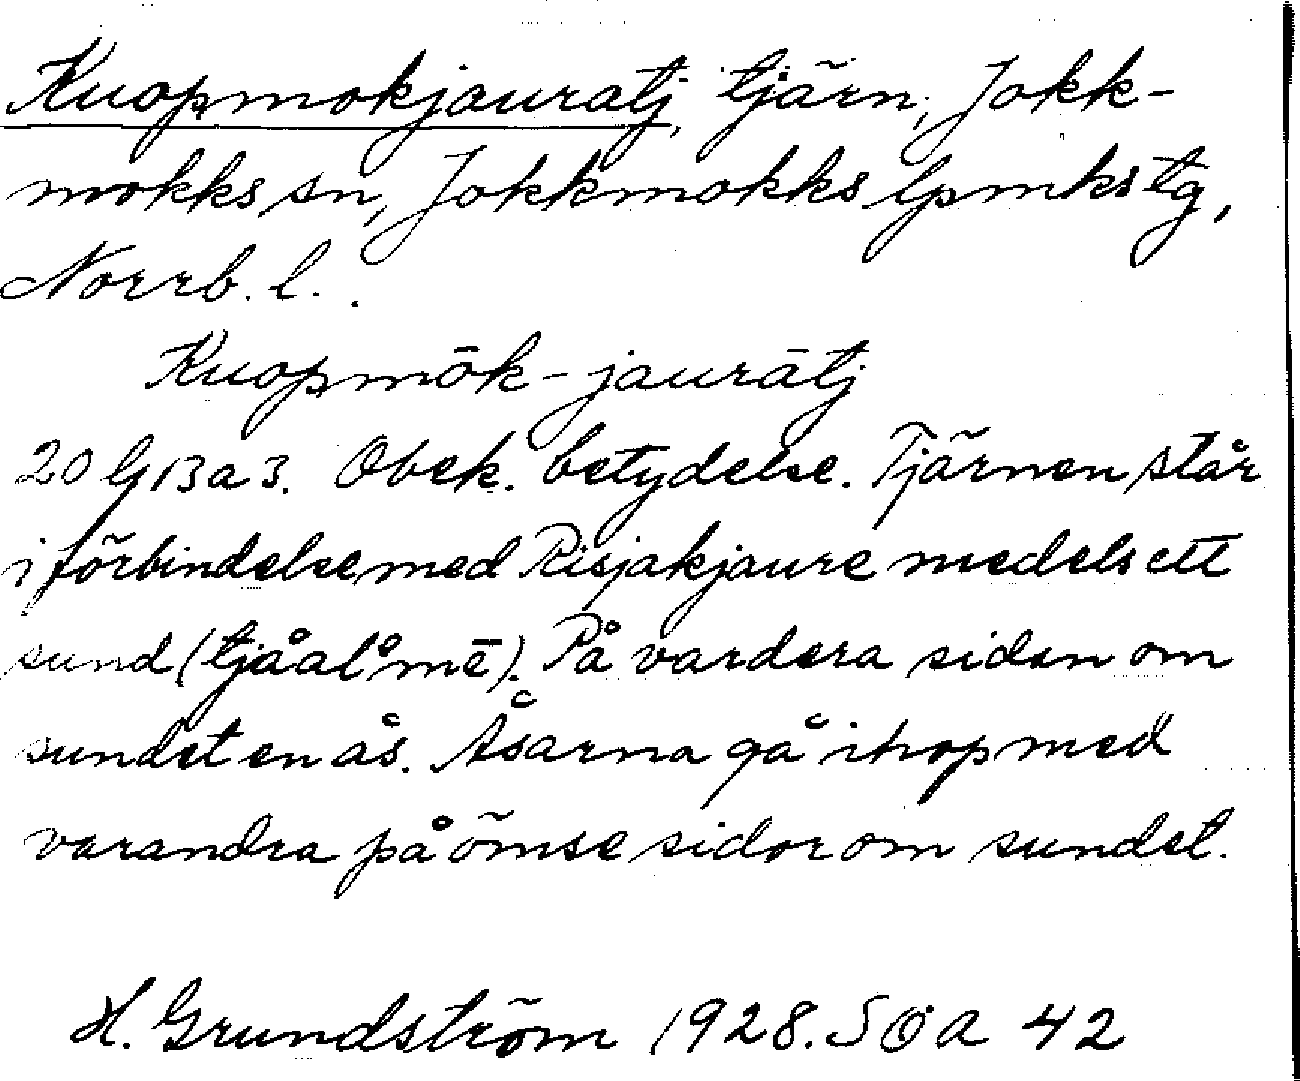 Kuopmokjauratj, tjärn, Jokk-
mokks sn, Jokkmokks lpmks tg,
Norrb. l.
Kuopmōk-jaurātj
20 G B a 3. Obek. betydelse. Tjärnen står
i förbindelse med Risjakjaure medels ett
sund (tjåålmē). På vardera sidan om
sundet en ås. Åsarna gå ihop med
varandra på ömse sidor om sundet.
H. Grundström 1928. SOA 42